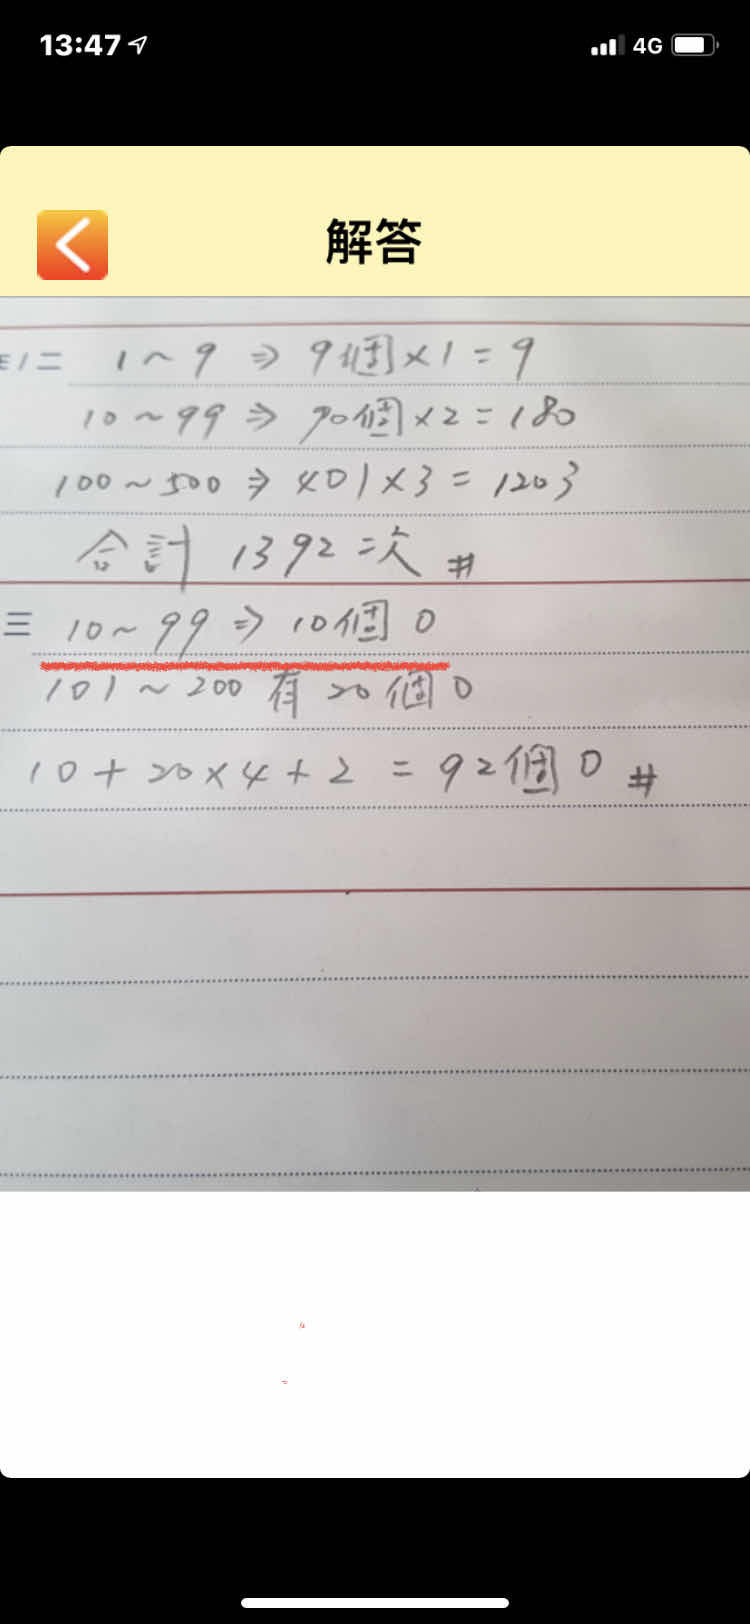 13:47
4G
解答
例二 1～9 ⇒ 9個×1=9
10～99 ⇒ 90個×2=180
100～500 ⇒ 401×3=1203
合計 1392次 #
三 10～99 ⇒ 10個0
101～200 有 20個0
10+20×4+2 = 92個0 #